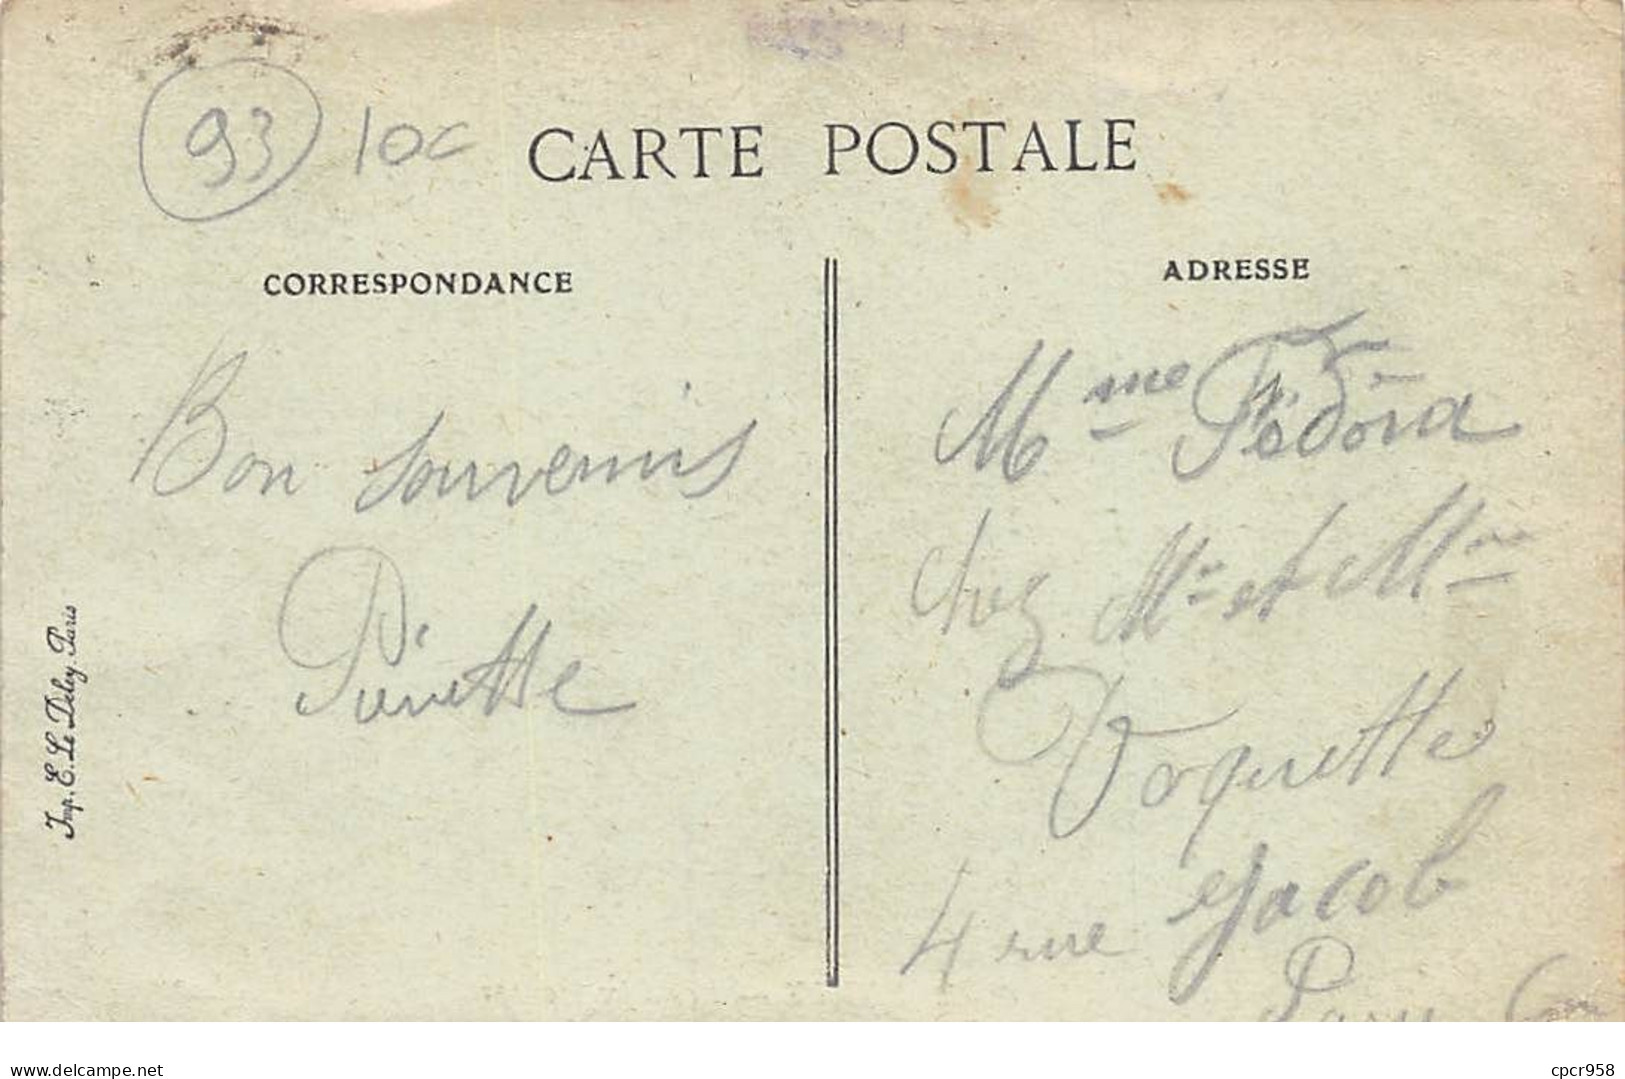 93 10c
CARTE POSTALE
CORRESPONDANCE
Bon souvenirs
Pierette
Imp. E. Le Deley, Paris
ADRESSE
Mme Fédora
chez Mr et Mme
Voquette
4 rue Jacob
Paris 6
www.delcampe.net
cpcr958